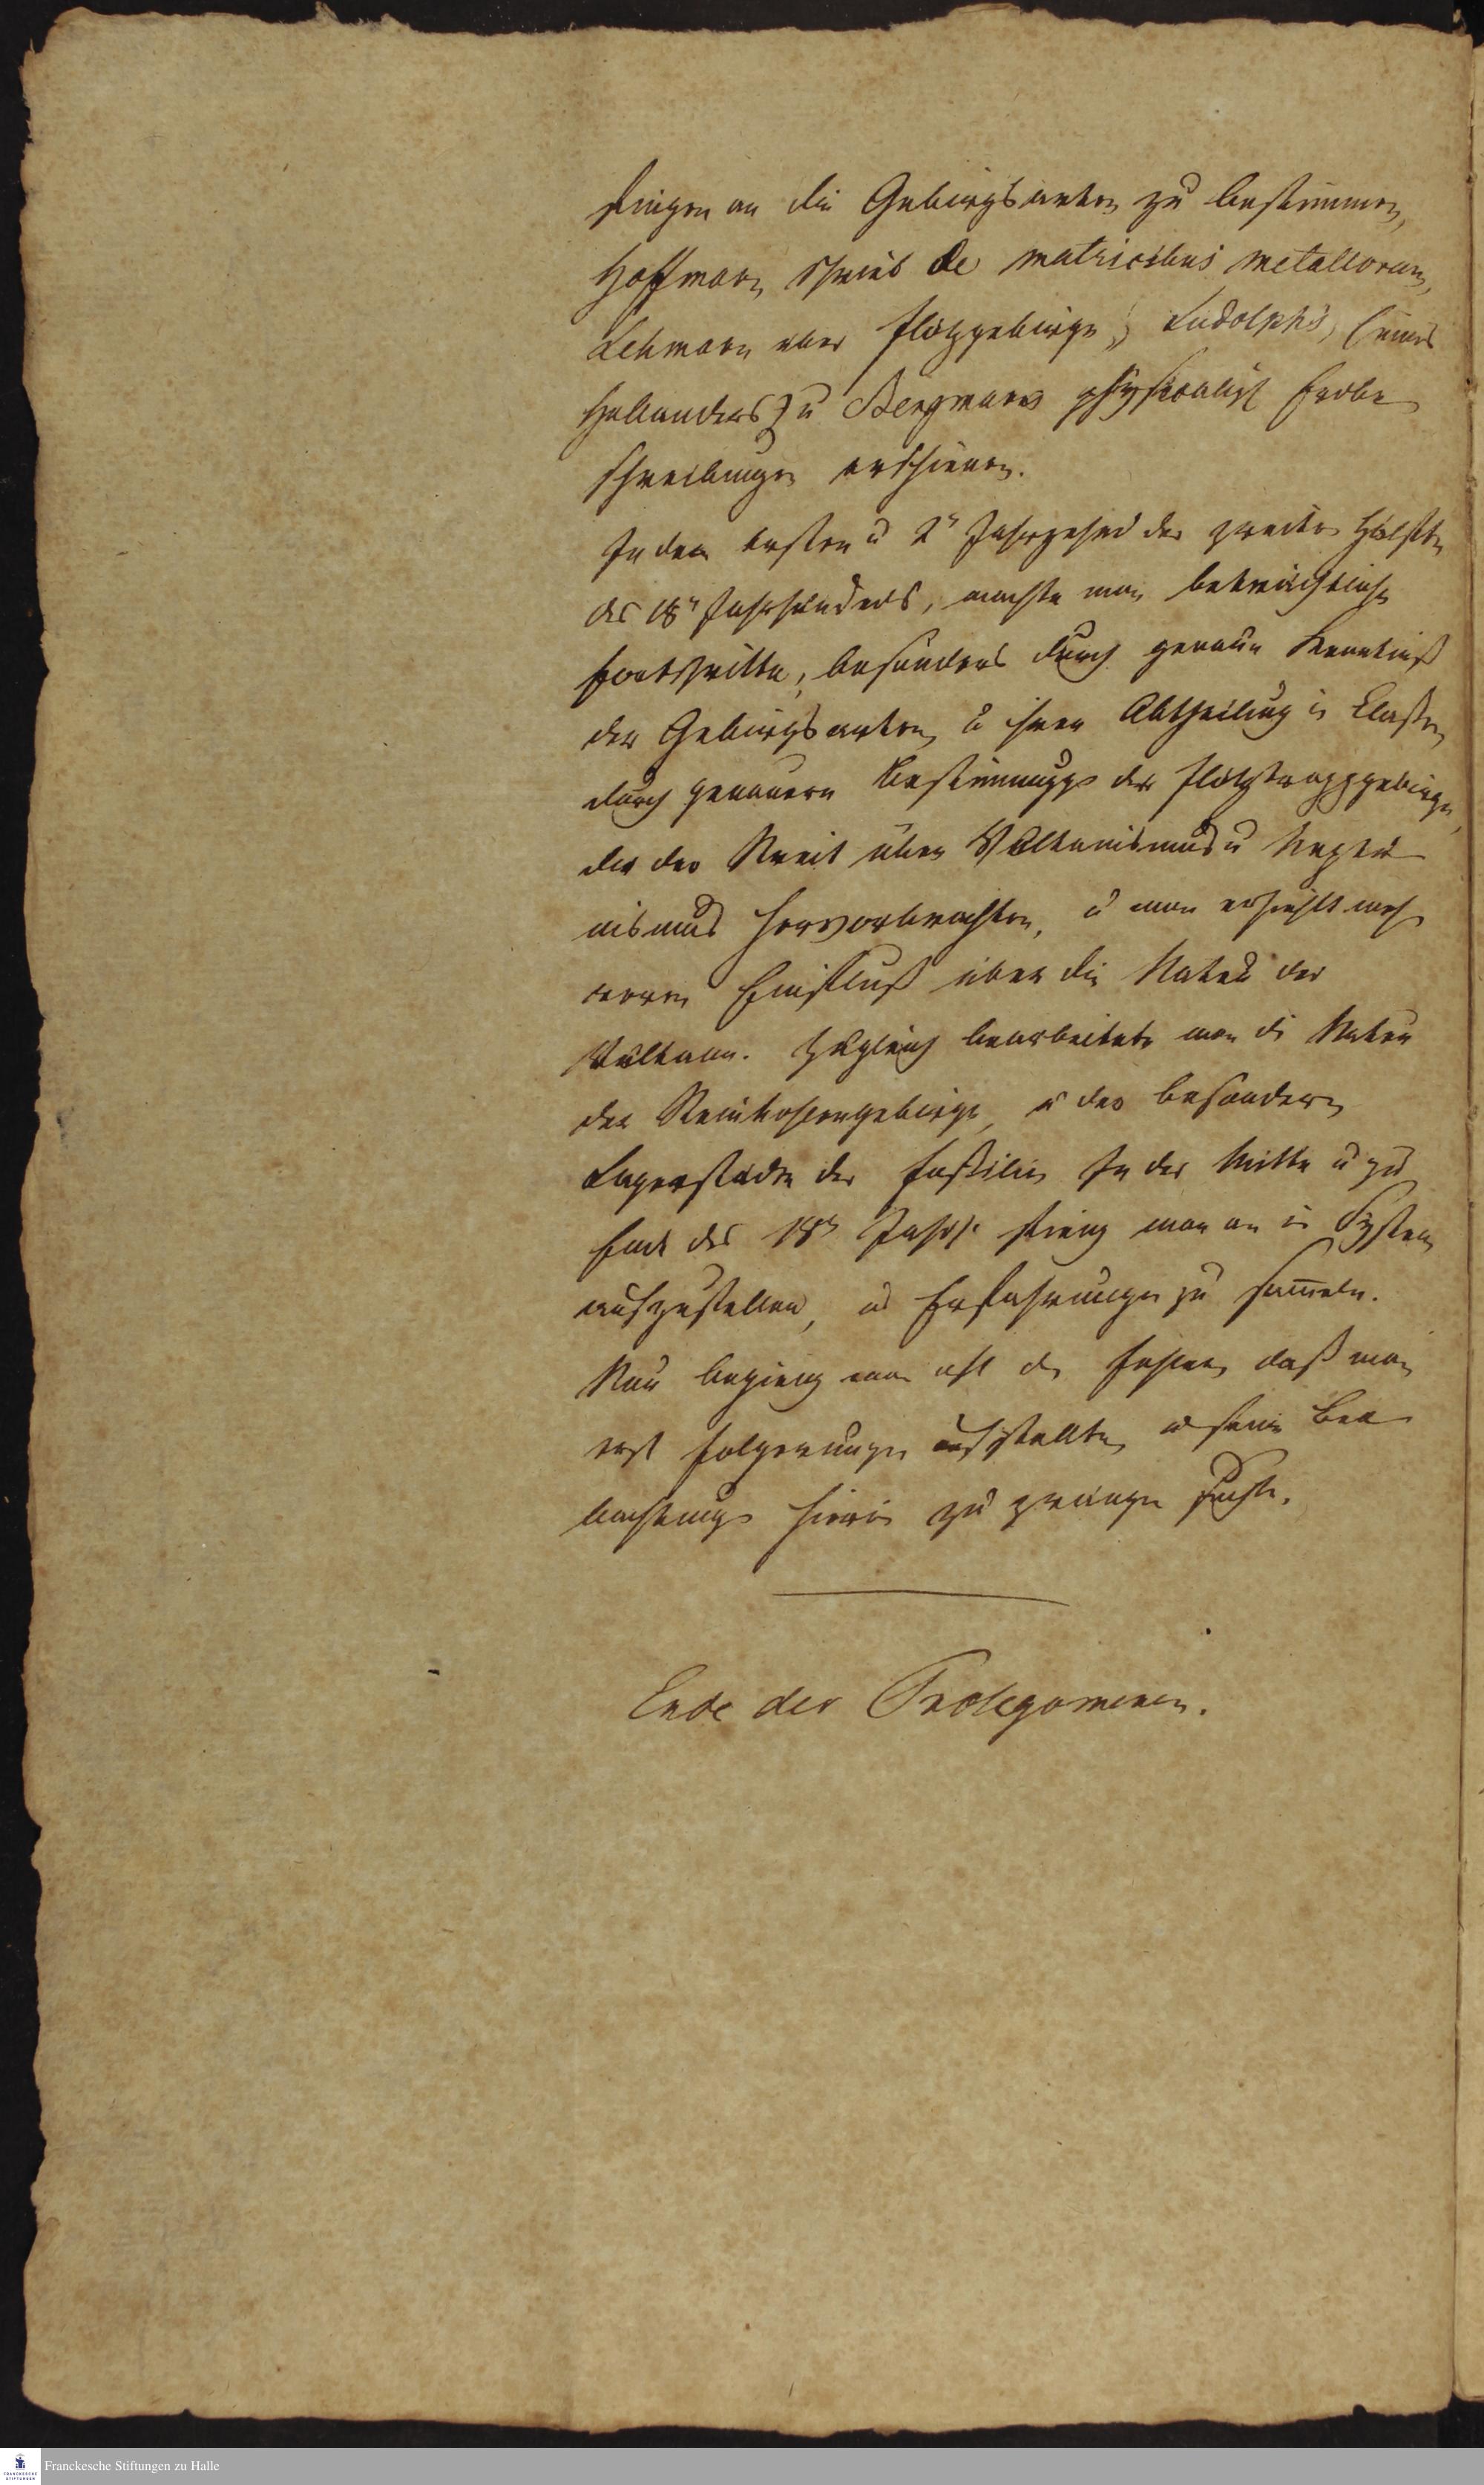 fingen an die Gebirgsarten zu bestimmen,
Hoffmann schrieb de matricibus metallorum,
Lehmann über Flötzgebirge, Ludolphs, (eines
Hollanders) u Bergmanns physicalisch Erdbe
schreibungen erschienen.
In dem ersten u 2n Jahrzehnd der zweiten Hälfte
des 18n Jahrhunderts, machte man beträchtliche
Fortschritte, besonders durch genaue Kenntniß
der Gebirgsarten, u ihrer Abtheilung in Classen,
durch genauere Bestimmung der Flötztrappgebirge,
die den Streit über Vulkanismus u Neptu
nismus hervorbrachten, u man erhielt meh
reren über die Natur der
Vulkane. Zugleich bearbeitete man die Natur
der Steinkohlengebirge, u der besondern
Lagerstädte der Foßilien In der Mitte u zu
Ende des 18n Jahrh. fieng man an in System
aufzustellen, u Erfahrungen zu sam̄eln.
Nun begieng man oft den Fehler, daß man
erst Folgerungen aufstellte, u seine Beo
bachtungen hierin zu zwängen suchte.
Ende der Prolegomenen.
Franckesche Stiftungen zu Halle